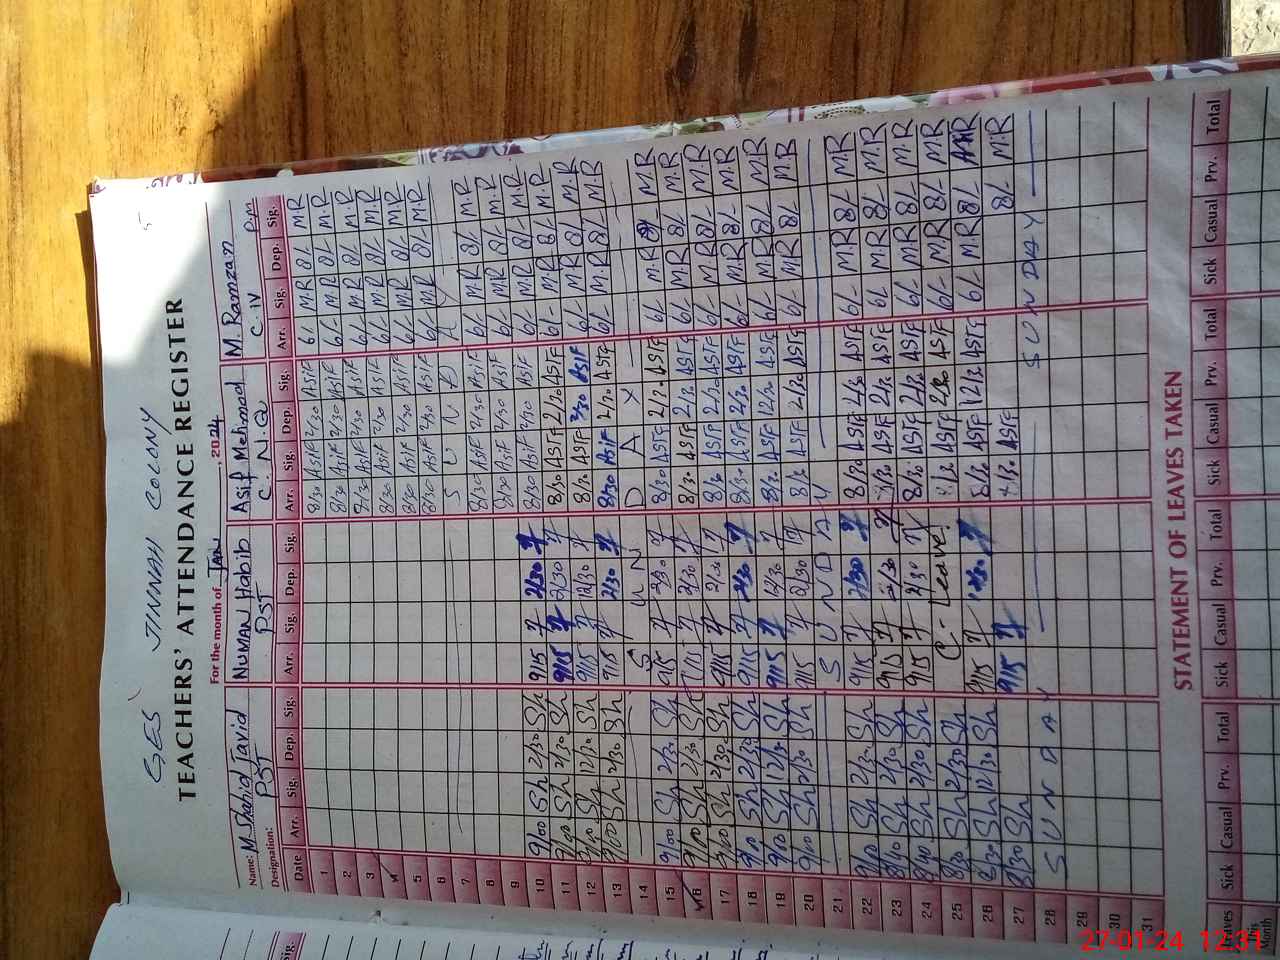 GES JINNAH COLONY
TEACHERS' ATTENDANCE REGISTER
For the month of JAN, 2024
Name: M. Shahid Javid NUMAN Habib Asif Mehmood M. Ramzan
Designation: PST PST C. N.Q C. IV P.M
Date Arr. Sig. Dep. Sig. Arr. Sig. Dep. Sig. Arr. Sig. Dep. Sig. Arr. Sig. Dep. Sig.
1 8/30 Asif 2/30 Asif 6/- M.R 8/- M.R
2 8/30 Asif 2/30 Asif 6/- M.R 8/- M.R
3 8/30 Asif 2/30 Asif 6/- M.R 8/- M.R
4 8/30 Asif 2/30 Asif 6/- M.R 8/- M.R
5 8/30 Asif 2/30 Asif 6/- M.R 8/- M.R
6 8/30 Asif 2/30 Asif 6/- M.R 8/- M.R
7 S U N D A Y
8 8/30 Asif 2/30 Asif 6/- M.R 8/- M.R
9 8/30 Asif 2/30 Asif 6/- M.R 8/- M.R
10 9/00 Sh 2/30 Sh 9/15 2/30 8/30 Asif 2/30 Asif 6/- M.R 8/- M.R
11 9/00 Sh 2/30 Sh 9/15 2/30 8/30 ASIF 2/30 ASIF 6/- M.R 8/- M.R
12 9/00 Sh 12/30 Sh 9/15 12/30 8/30 ASIF Asif 6/- M.R 8/- M.R
13 9/00 Sh 2/30 Sh 9/15 2/30 8/30 Asif 2/30 ASIF 6/- M.R 8/- M.R
14 S U N D A Y
15 9/00 Sh 2/30 Sh 9/15 2/30 8/30 ASIF 2/30 ASIF 6/- M.R 8/- M.R
16 9/00 Sh 2/30 Sh 9/15 2/30 8/30 ASIF 2/30 ASIF 6/- M.R 8/- M.R
17 9/00 Sh 2/30 Sh 9/15 2/30 8/30 ASIF 2/30 ASIF 6/- M.R 8/- M.R
18 9/00 Sh 2/30 Sh 9/15 2/30 8/30 ASIF 2/30 ASIF 6/- M.R 8/- M.R
19 9/00 Sh 12/30 Sh 9/15 12/30 8/30 ASIF 12/30 ASIF 6/- M.R 8/- M.R
20 9/00 Sh 2/30 Sh 9/15 2/30 8/30 ASIF 2/30 ASIF 6/- M.R 8/- M.R
21 S U N D A Y
22 9/00 Sh 2/30 Sh 9/15 2/30 8/30 ASIF 2/30 ASIF 6/- M.R 8/- M.R
23 Sh 2/30 Sh 9/15 2/30 8/30 ASIF 2/30 ASIF 6/- M.R 8/- M.R
24 Sh 2/30 Sh 9/15 2/30 8/30 ASIF 2/30 ASIF 6/- M.R 8/- M.R
25 8/30 Sh 2/30 Sh C - Leave ASIF 2/30 ASIF 6/- M.R 8/- M.R
26 8/30 Sh 12/30 Sh 9/15 12/30 8/30 ASIF 12/30 ASIF 6/- M.R 8/-
27 8/30 Sh 9/15 ASIF 8/- M.R
28 S U N D A Y SUNDAY
29
30
31
STATEMENT OF LEAVES TAKEN
Sick Casual Prv. Total Sick Casual Prv. Total Sick Casual Prv. Total Sick Casual Prv. Total
Month
27-01-24 12:31